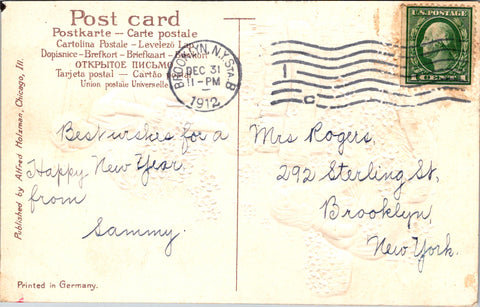 Post card
Postkarte — Carte postale
Cartolina Postale - Levelező L
Dopisnice - Brefkort - Briefkaart - Buskort
ОТКРЫТОЕ ПИСЬМО
Tarjeta postal — Cartão postal
Union postale Universelle
BROOKLYN, N.Y. STA. B
DEC 31
11-PM
1912
U.S. POSTAGE
1 CENT 1
Published by Alfred Holzman, Chicago, Ill.
Best wishes for a
Happy New Year
from
Sammy.
Mrs Rogers,
292 Sterling St,
Brooklyn,
New York.
Printed in Germany.